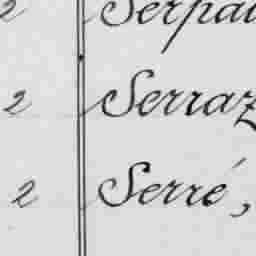 2 Serpau
2 Serraz
2 Serré,